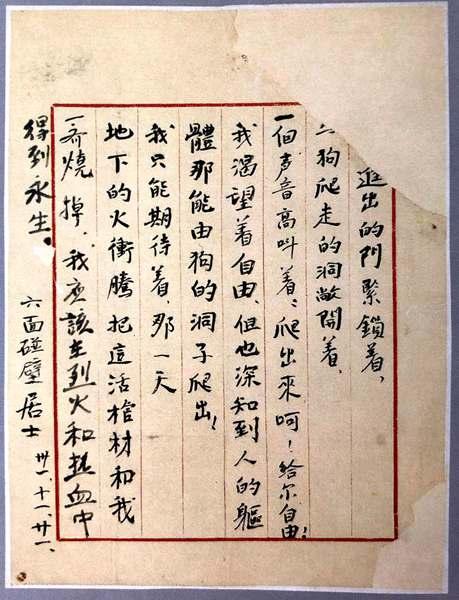 進出的門緊鎖着、
狗爬走的洞敞開着、
一個声音高叫着：爬出來呵！給尔自由！
我渴望着自由、但也深知到人的軀
體那能由狗的洞子爬出！
我只能期待着、那一天
地下的火衝騰把這活棺材和我
一齊燒掉、我应該在烈火和热血中
得到永生。
六面碰壁居士 卅一、十一、廿一、